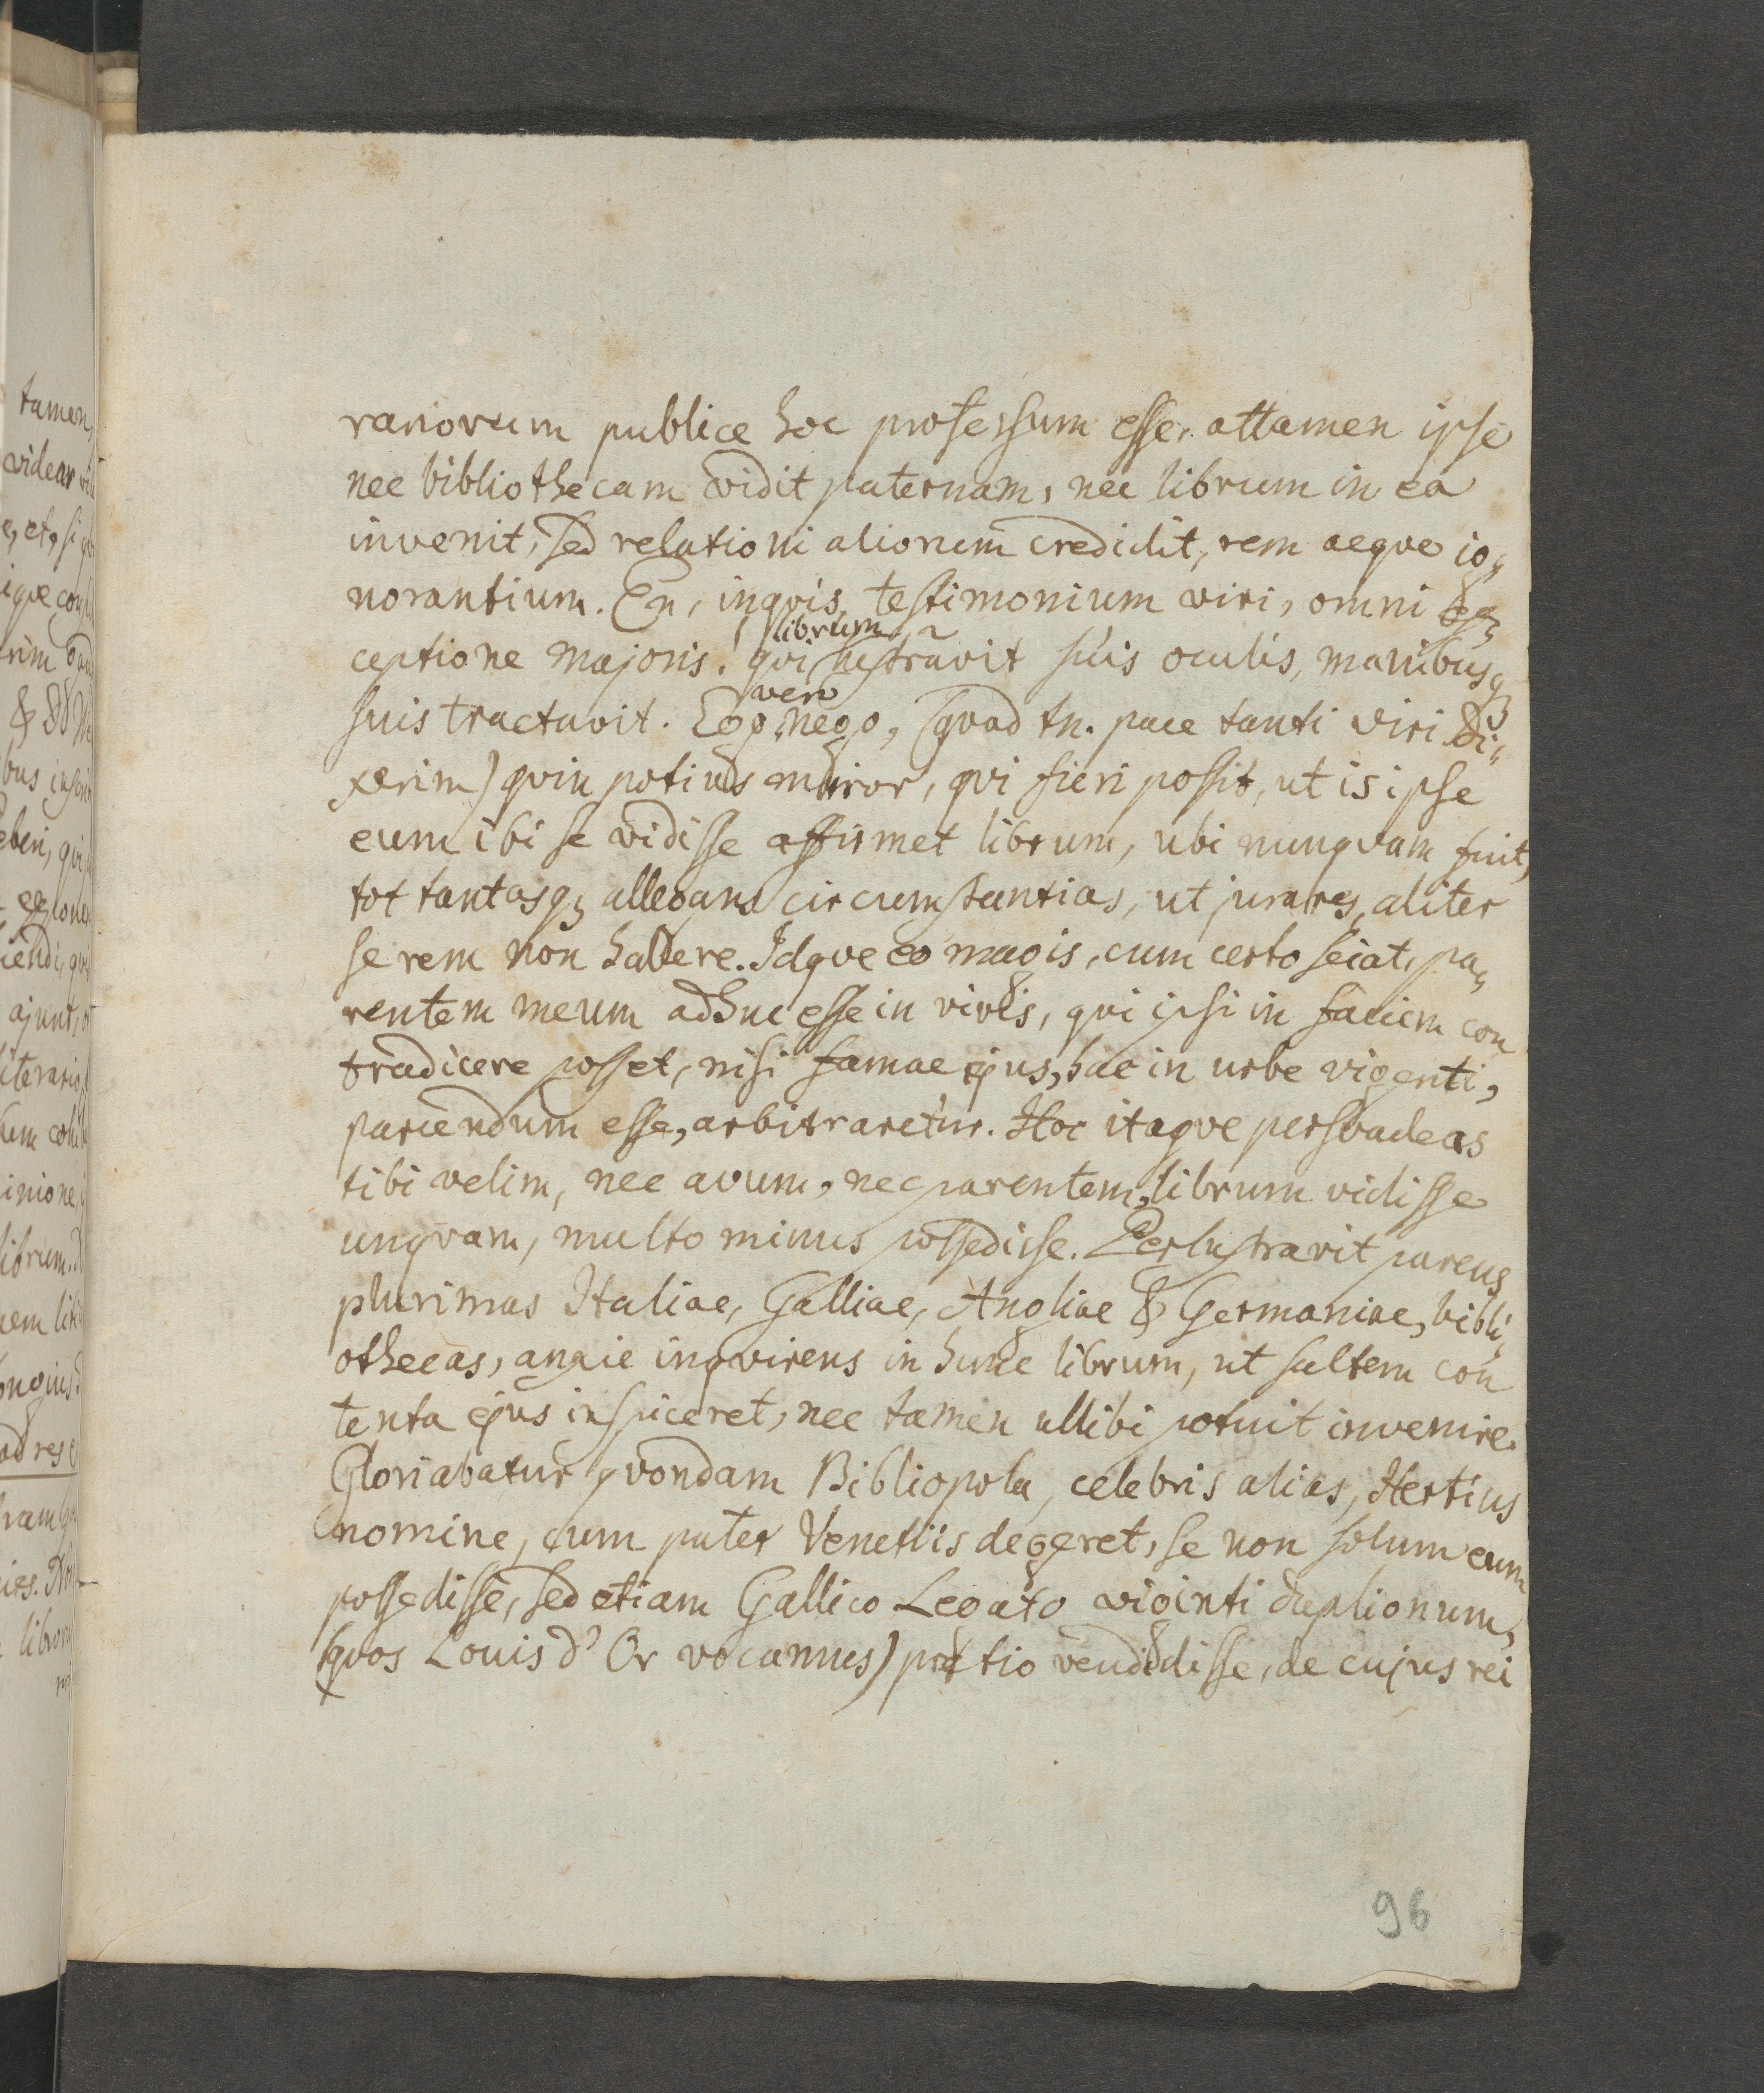 rariorum publice hoc professum esse, attamen ipse
nec bibliothecam vidit paternam, nec librum in ea
invenit, sed relationi aliorum credidit, rem aeque ig„
norantium. En, inqvis, testimonium viri, omni ex„
librum
ceptione majoris! qvi lustravit suis oculis, manibusqꝫ
vero
suis tractavit. Ego nego, (qvod tn. pace tanti viri di„
xerim) qvin potius miror, qvi fieri possit, ut is ipse
eum ibi se vidisse affirmet librum, ubi nunqvam fuit,
tot tantasqꝫ allegans circumstantias, ut jurares, aliter
se rem non habere. Idqve eo magis, cum certo sciat, pa„
rentem meum adhuc esse in vivis, qvi ipsi in faciem con
tradicere posset, nisi famae ejus, hac in urbe vigenti,
parcendum esse, arbitraretur. Hoc itaqve persvadeas
tibi velim, nec avum, nec parentem, librum vidisse
unqvam, multo minus possedisse. Perlustravit parens
plurimas Italiae, Galliae, Angliae & Germaniae, bibli„
othecas, anxie inqvirens in hunc librum, ut saltem con
tenta ejus inspiceret, nec tamen ullibi potuit invenire.
Gloriabatur qvondam Bibliopola, celebris alias, Hertius
nomine, cum pater Venetiis degeret, se non solum eum
possedisse, sed etiam Gallico Legato viginti duplionum,
(qvos Louis d'Or vocamus) pretio vendidisse, de cujus rei
96
tamen,
videar